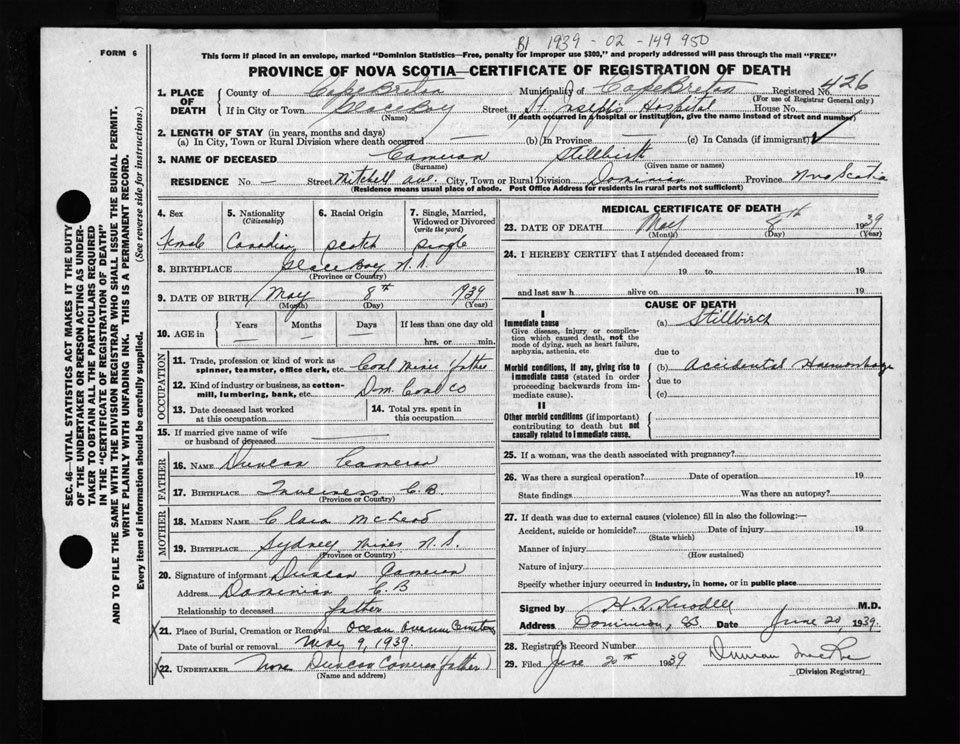 B1 1939 - 02 - 149 950
FORM 6
This form if placed in an envelope, marked "Dominion Statistics—Free, penalty for improper use $300," and properly addressed will pass through the mail "FREE"
PROVINCE OF NOVA SCOTIA—CERTIFICATE OF REGISTRATION OF DEATH
426
SEC. 46—VITAL STATISTICS ACT MAKES IT THE DUTY
OF THE UNDERTAKER OR PERSON ACTING AS UNDER-
TAKER TO OBTAIN ALL THE PARTICULARS REQUIRED
IN THE "CERTIFICATE OF REGISTRATION OF DEATH"
AND TO FILE THE SAME WITH THE DIVISION REGISTRAR WHO SHALL ISSUE THE BURIAL PERMIT.
WRITE PLAINLY WITH UNFADING INK. THIS IS A PERMANENT RECORD.
Every item of information should be carefully supplied. (See reverse side for instructions.)
1. PLACE OF DEATH County of Cape Breton Municipality of Cape Breton Registered No.
(For use of Registrar General only)
If in City or Town Glace Bay Street St Joseph's Hospital House No.
(Name) (If death occurred in a hospital or institution, give the name instead of street and number)
2. LENGTH OF STAY (in years, months and days)
(a) In City, Town or Rural Division where death occurred — (b) In Province — (c) In Canada (if immigrant) ✓
3. NAME OF DECEASED Cameron Stillbirth
(Surname) (Given name or names)
RESIDENCE No. — Street Mitchell Ave. City, Town or Rural Division Dominion Province Nova Scotia
(Residence means usual place of abode. Post Office Address for residents in rural parts not sufficient)
4. Sex 5. Nationality (Citizenship) 6. Racial Origin 7. Single, Married, Widowed or Divorced (write the word)
Female Canadian Scotch Single
8. BIRTHPLACE Glace Bay N.S.
(Province or Country)
9. DATE OF BIRTH May 8th 1939
(Month) (Day) (Year)
10. AGE in Years Months Days If less than one day old
hrs. or min.
OCCUPATION
11. Trade, profession or kind of work as
spinner, teamster, office clerk, etc. Coal Miner father
12. Kind of industry or business, as cotton-
mill, lumbering, bank, etc. Dom. Coal Co
13. Date deceased last worked at this occupation 14. Total yrs. spent in this occupation
15. If married give name of wife
or husband of deceased —
FATHER
16. NAME Duncan Cameron
17. BIRTHPLACE Inverness C.B.
(Province or Country)
MOTHER
18. MAIDEN NAME Clara McLeod
19. BIRTHPLACE Sydney Mines N.S.
(Province or Country)
20. Signature of informant Duncan Cameron
Address Dominion C.B
Relationship to deceased father
X 21. Place of Burial, Cremation or Removal Ocean Avenue Cemetery
Date of burial or removal May 9, 1939.
X 22. UNDERTAKER None Duncan Cameron (father)
(Name and address)
MEDICAL CERTIFICATE OF DEATH
23. DATE OF DEATH May 8th 1939
(Month) (Day) (Year)
24. I HEREBY CERTIFY that I attended deceased from:
19 to 19
and last saw h alive on 19
CAUSE OF DEATH
I
Immediate cause (a) Stillbirth
Give disease, injury or complica-
tion which caused death, not the
mode of dying, such as heart failure,
asphyxia, asthenia, etc due to
Morbid conditions, if any, giving rise to (b) Accidental Haemorrhage
immediate cause (stated in order due to
proceeding backwards from im-
mediate cause). (c)
II
Other morbid conditions (if important)
contributing to death but not
causally related to immediate cause.
25. If a woman, was the death associated with pregnancy?
26. Was there a surgical operation? Date of operation 19
State findings Was there an autopsy?
27. If death was due to external causes (violence) fill in also the following:—
Accident, suicide or homicide? Date of injury 19
(State which)
Manner of injury
(How sustained)
Nature of injury
Specify whether injury occurred in industry, in home, or in public place
Signed by H. M.D.
Address Dominion, CB Date June 20, 1939.
28. Registrar's Record Number
29. Filed June 20th 1939 Duncan
(Division Registrar)